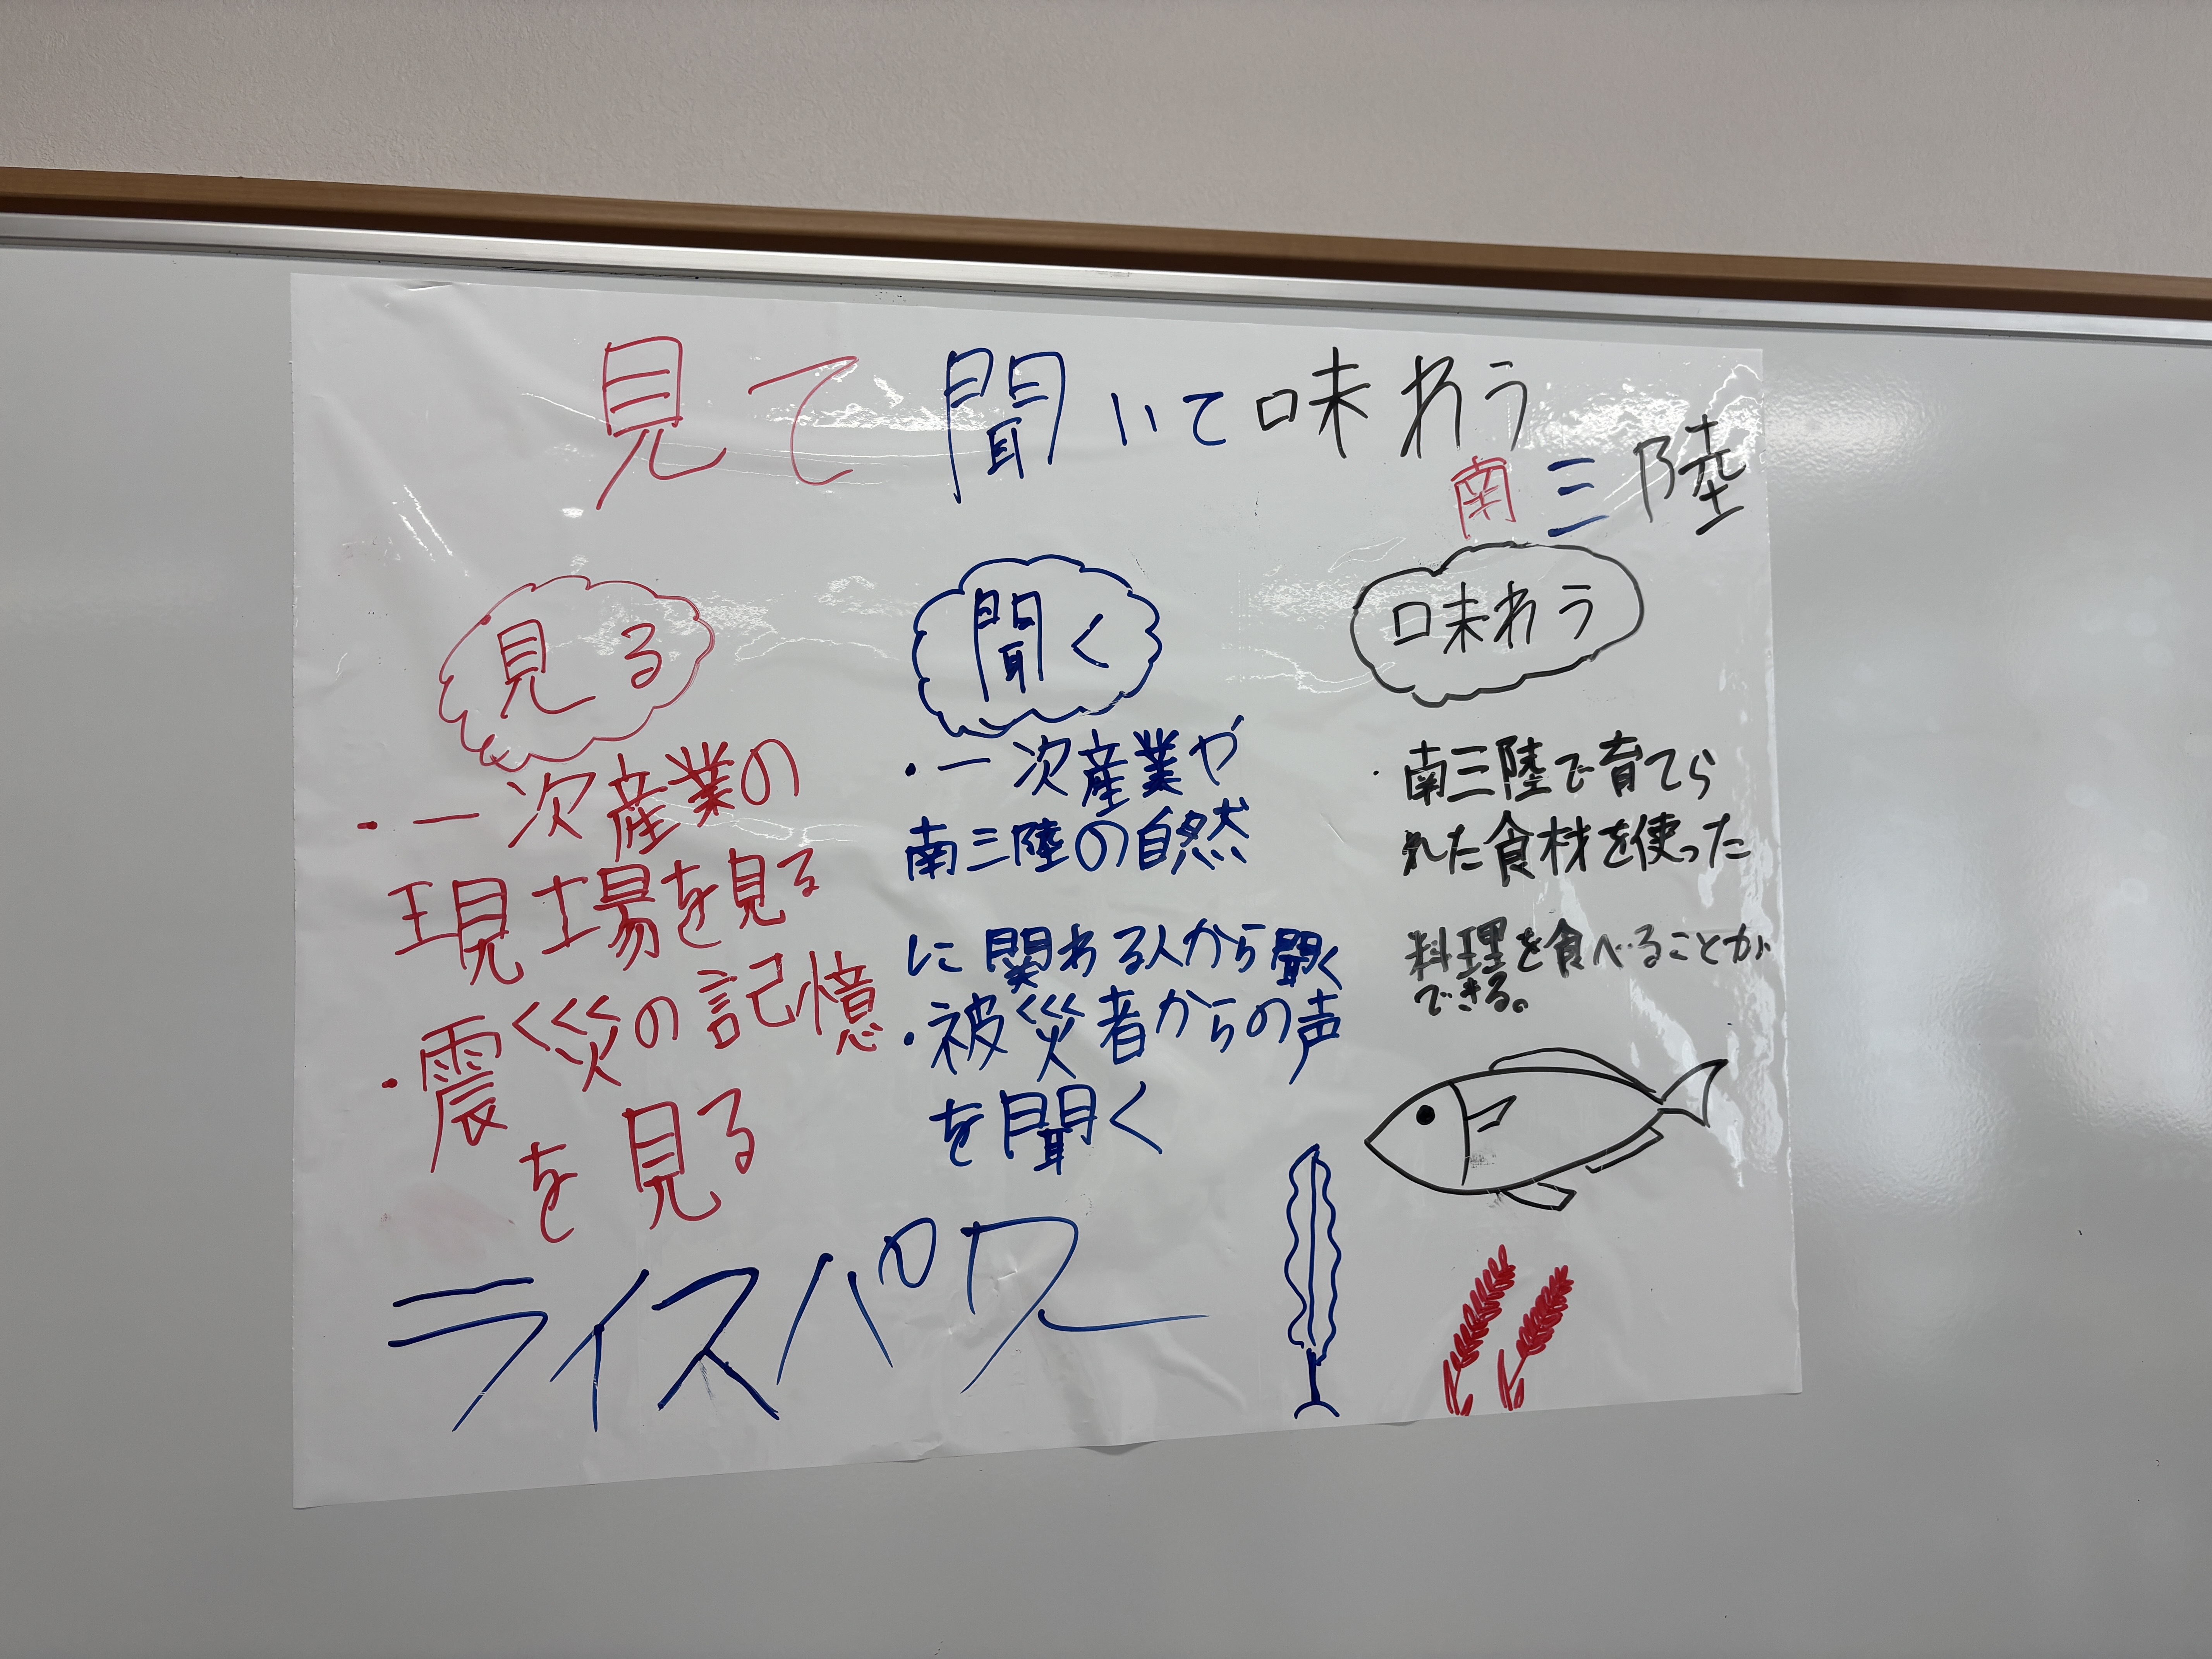 見て聞いて味わう
南三陸
見る
・一次産業の
現場を見る
・震災の記憶
を見る
聞く
・一次産業や
南三陸の自然
に関わる人から聞く
・被災者からの声
を聞く
味わう
・南三陸で育てら
れた食材を使った
料理を食べることが
できる。
ライスパワー